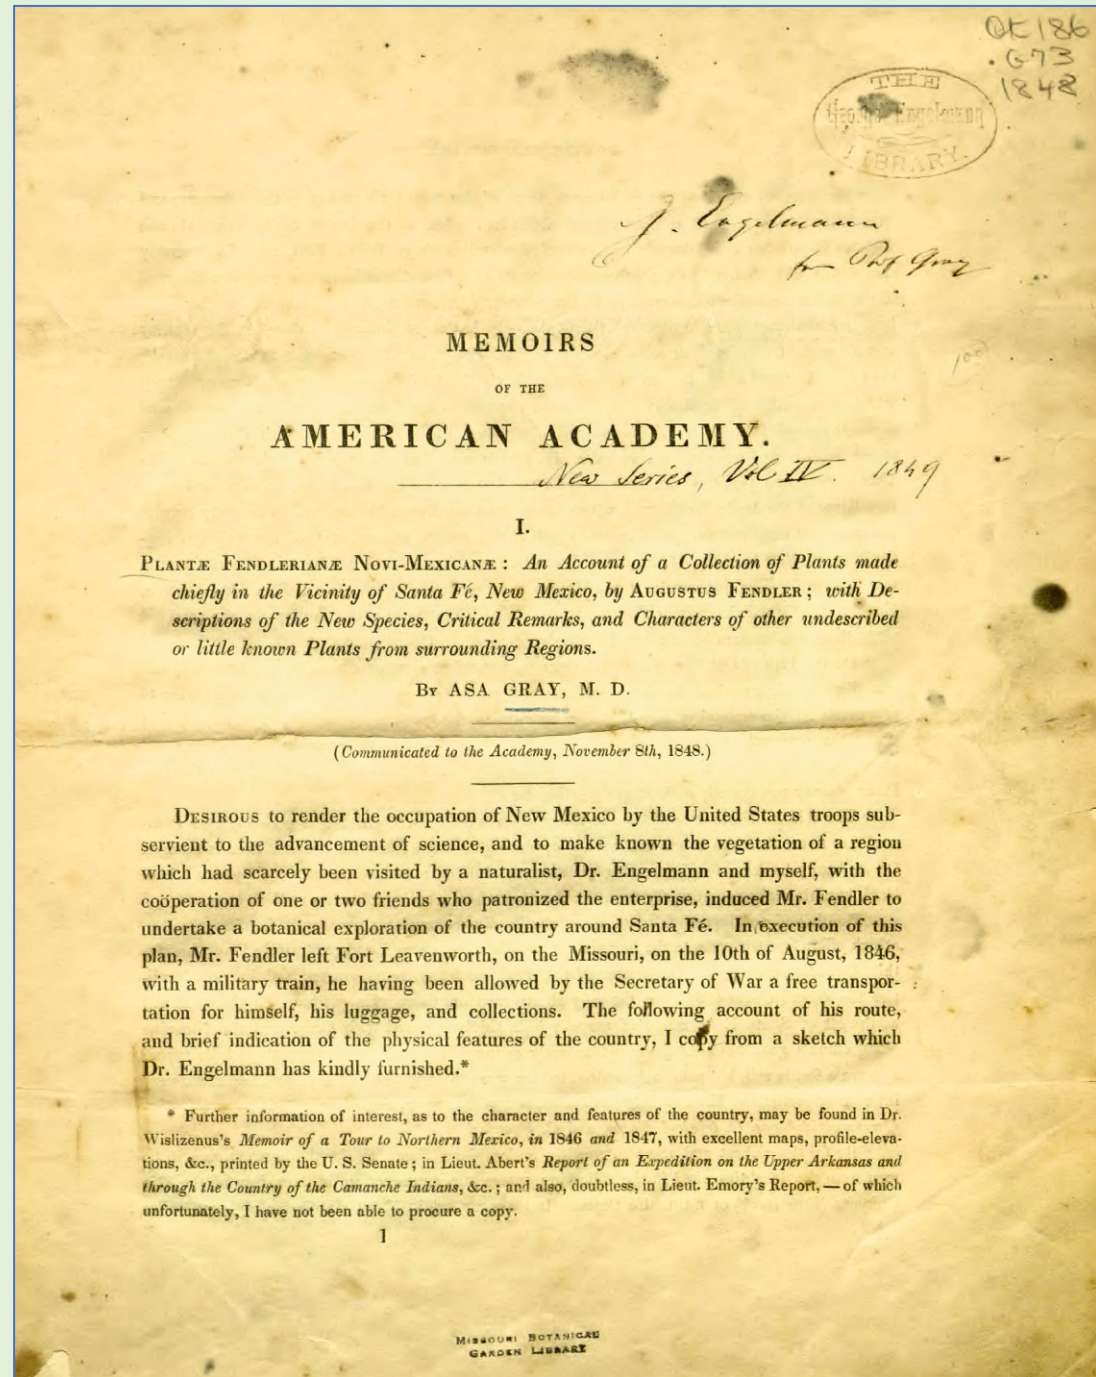 QK186
.G73
1848
THE
George Engelmann
LIBRARY.
G. Engelmann
from Prof Gray
MEMOIRS
OF THE
AMERICAN ACADEMY.
New Series, Vol IV. 1849
I.
PLANTÆ FENDLERIANÆ NOVI-MEXICANÆ: An Account of a Collection of Plants made
chiefly in the Vicinity of Santa Fé, New Mexico, by AUGUSTUS FENDLER; with De-
scriptions of the New Species, Critical Remarks, and Characters of other undescribed
or little known Plants from surrounding Regions.
BY ASA GRAY, M. D.
(Communicated to the Academy, November 8th, 1848.)
DESIROUS to render the occupation of New Mexico by the United States troops sub-
servient to the advancement of science, and to make known the vegetation of a region
which had scarcely been visited by a naturalist, Dr. Engelmann and myself, with the
coöperation of one or two friends who patronized the enterprise, induced Mr. Fendler to
undertake a botanical exploration of the country around Santa Fé. In execution of this
plan, Mr. Fendler left Fort Leavenworth, on the Missouri, on the 10th of August, 1846,
with a military train, he having been allowed by the Secretary of War a free transpor-
tation for himself, his luggage, and collections. The following account of his route,
and brief indication of the physical features of the country, I copy from a sketch which
Dr. Engelmann has kindly furnished.*
* Further information of interest, as to the character and features of the country, may be found in Dr.
Wislizenus's Memoir of a Tour to Northern Mexico, in 1846 and 1847, with excellent maps, profile-eleva-
tions, &c., printed by the U. S. Senate; in Lieut. Abert's Report of an Expedition on the Upper Arkansas and
through the Country of the Camanche Indians, &c.; and also, doubtless, in Lieut. Emory's Report, — of which
unfortunately, I have not been able to procure a copy.
1
MISSOURI BOTANICAL
GARDEN LIBRARY